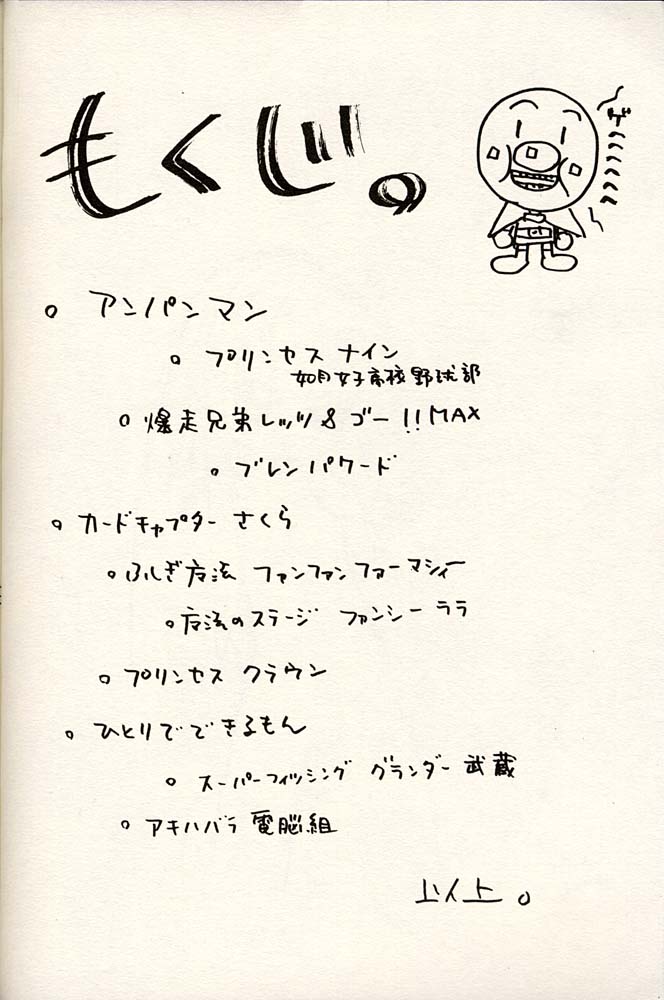 もくじ。
ゲ
。アンパンマン
。プリンセス ナイン
如月女子高校野球部
。爆走兄弟レッツ&ゴー!!MAX
。ブレンパワード
。カードキャプター さくら
。ふしぎ魔法 ファンファンファーマシィー
。魔法のステージ ファンシーララ
。プリンセス クラウン
。ひとりでできるもん
。スーパーフィッシング グランダー武蔵
。アキハバラ電脳組
以上。